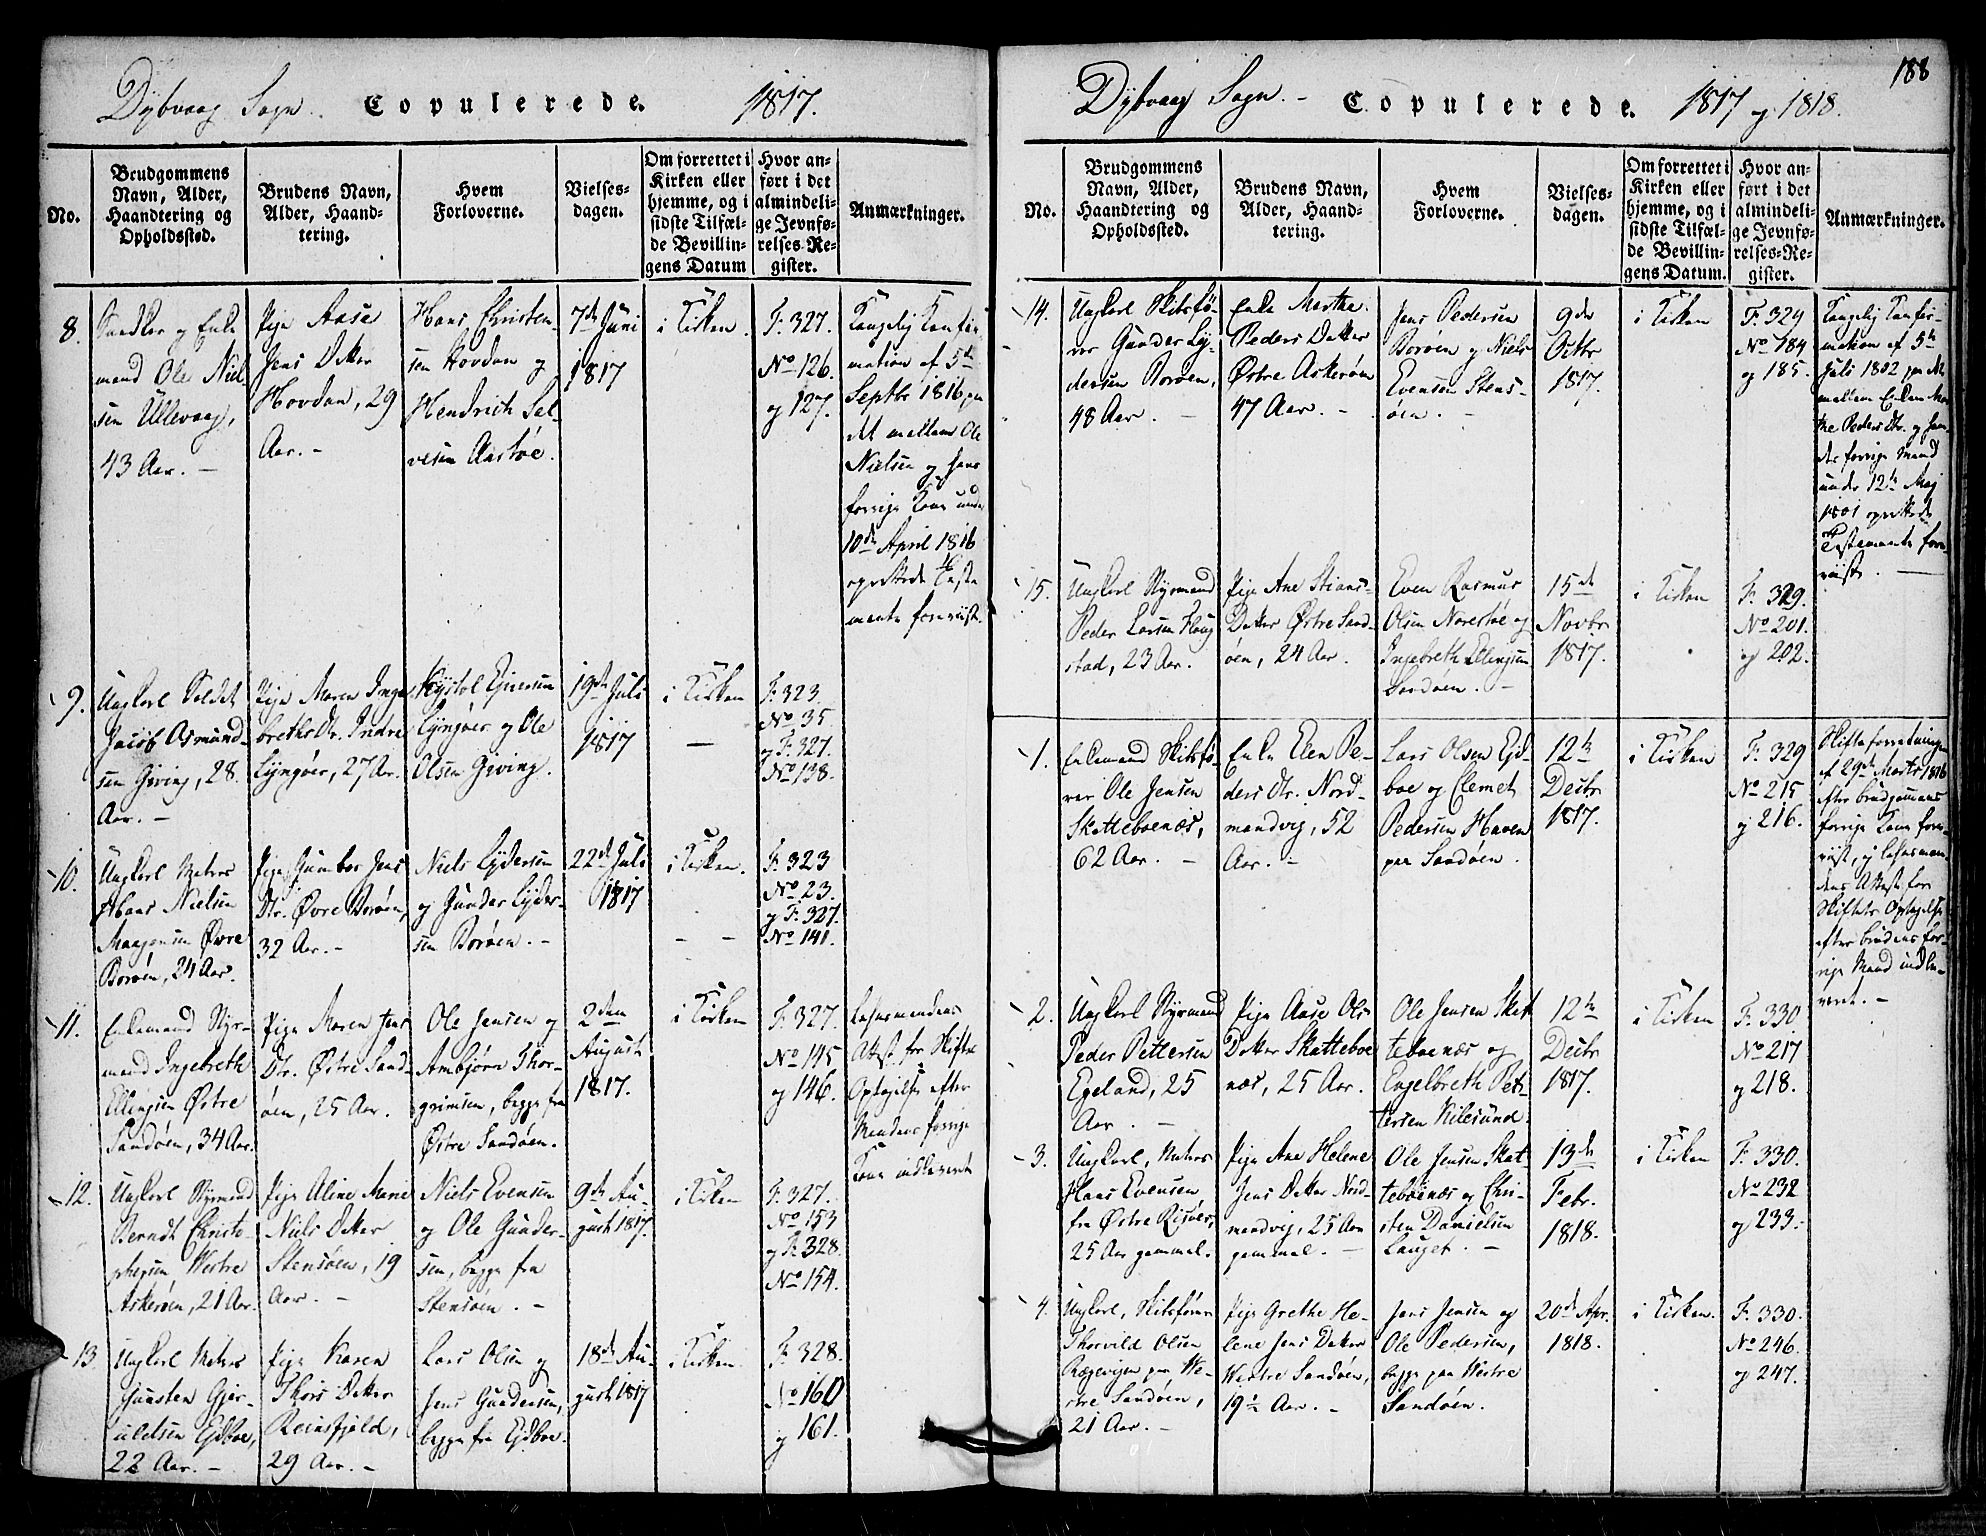 Dybvaag Sogn. Copulerede. 1817.
No.
Brudgommens
Navn, Alder,
Haandtering og
Opholdssted.
Brudens Navn,
Alder, Haand-
tering.
Hvem
Forloverne.
Vielses-
dagen.
Om forrettet i
Kirken eller
hjemme, og i
sidste Tilfæl-
de Bevillin-
gens Datum
Hvor an-
ført i det
almindeli-
ge Jevnfø-
relses-Re-
gister.
Anmærkninger.
8.
og Enke
mand Ole Niel
sen Ullevaag,
43 Aar. –
Pige Aase
Jens Datter
Hovdan, 29
Aar. –
Hans Christen-
sen Hovdan og
Hendrich Sal-
vesen Aastøe.
7de Juni
1817
i Kirken.
F. 327.
No 126.
og 127.
Kongelig Confir
mation af 5te
Septbr 1816 paa
det mellem Ole
Nielsen og hans
forrige Kone under
10de April 1816
oprettede Testa
mente foreviist.
9.
Ungkarl Soldat
Jacob Asmund-
sen Giving, 28
Aar. –
Pige Maren Inge
breths Dtr. Indre
Lyngøer, 27 Ar.
Ejversen
Lyngøer og Ole
Olsen Giving.
19de Juli
1817
i Kirken
–
F. 323.
No 35.
og F. 327.
No 138.
10.
Ungkarl Matros
Hans Nielsen
Maagensen Øvre
Borøen, 24 Aar.
Pige Gumbor Jens
Dtr. Øvre Borøen,
32 Aar. –
Niels Lydersen
og Gunder Lyder-
sen Borøen. –
22de Juli
1817
i Kirken.
– –
F. 323
No 23.
og F. 327.
No 141.
11.
Enkemand Styr-
mand Ingebreth
Ellingsen Østre
Sandøen, 34 Aar.
Pige Maren Jens
Dtr. Østre Sand-
øen, 25 Aar.
Ole Jensen og
Ambjørn Thor-
grimsen, begge fra
Østre Sandøen.
2den
August
1817.
i Kirken
F. 327.
No 145
og 146.
Lensmandens
Attest for Skiftes
Optagelse efter
Mandens forrige
Kone indleveret
12.
Ungkarl Styrmand
Berndt Christo-
phersen Westre
Askerøen, 21 Aar.
Pige Aline Marie
Niels Datter
Stensøen, 19
Aar. –
Niels Evensen
og Ole Gunder-
sen, begge fra
Stensøen. –
9de Au-
gust 1817.
i Kirken
F. 327.
No 153
og F. 328.
No 154.
13.
Ungkarl Matros
Gunsten Gjer-
uldsen Ejdboe,
22 Aar. –
Pige Karen
Thors Datter
Reinsfjeld,
29 Aar. –
Lars Olsen og
Jens Gundersen,
begge fra Ejdboe.
18de Au-
gust 1817
i Kirken.
F. 328.
No 160
og 161.
188
Dybvaag Sogn. – Copulerede. 1817 og 1818.
No.
Brudgommens
Navn, Alder,
Haandtering og
Opholdssted.
Brudens Navn,
Alder, Haand-
tering.
Hvem
Forloverne.
Vielses-
dagen.
Om forrettet i
Kirken eller
hjemme, og i
sidste Tilfæl-
de Bevillin-
gens Datum.
Hvor an-
ført i det
almindeli-
ge Jevnfø-
relses-Re-
gister.
Anmærkninger.
14.
Ungkarl Skibsfø-
rer Gunder Ly-
dersen Borøen,
48 Aar. –
Enke Marthe
Peders Datter
Østre Askerøen
47 Aar. –
Jens Pedersen
Borøen og Niels
Evensen Stens-
øen. –
9de
Octbr
1817.
i Kirken
F. 329
No 184
og 185.
Kongelig Confir-
mation af 5te
Juli 1802 paa det
mellem Enken Mar
the Peders Dtr. og hen-
des forrige Mand
under 12te Maj
1801 oprettede
Testamente fore-
viist. –
15.
Ungkarl Styrmand
Peder Larsen Flaug
stad, 23 Aar.
Pige Ane Stians-
Datter Østre Sand-
øen, 24 Aar.
Even Rasmus
Olsen Narestøe og
Ingebreth Ellingsen
Sandøen. –
15de
Novbr
1817.
i Kirken
F. 329.
No 201.
og 202.
1.
Enkemand Skibsfø-
rer Ole Jensen
Skatteboenæs,
62 Aar. –
Enke Elen Pe-
ders Dtr. Nord-
mandvig, 52
Aar. –
Lars Olsen Ejd-
boe og Clemet
Pedersen Haven
paa Sandøen.
12te
Decbr
1817.
i Kirken
F. 329
No 215
og 216.
Skifteforretningen
af 29de Marts 1816
efter Brudgommens
forrige Kone fore-
viist, og Lensman-
dens Attest for
Skiftets Optagelse
efter Brudens for-
rige Mand indle-
veret. –
2.
Ungkarl Styrmand
Peder Pettersen
Egeland, 25
Aar. –
Pige Aase Ols
Datter Skatteboe
næs, 25 Aar.
Ole Jensen Skat
teboenæs og
Engelbreth Pet-
tersen Kilesund.
12te
Decbr
1817.
i Kirken
F. 330
No 217
og 218.
3.
Ungkarl, Matros
Hans Evensen
fra Østre Risøer,
25 Aar gammel.
Pige Ane Helene
Jens Datter Nord-
mandvig, 25 Aar
gammel. –
Ole Jensen Skat-
teboenæs og Chri-
sten Danielsen
Lauget. –
13de
Febr.
1818.
i Kirken
F. 330.
No 232
og 233.
4.
Ungkarl, Skibsfører
Thorvild Olsen
paa We-
stre Sandøen,
21 Aar. –
Pige Grethe He-
lene Jens Datter
Westre Sandøen,
19½ Aar. –
Jens Jensen og
Ole Pedersen,
begge paa Westre
Sandøen.
20de Apr.
1818.
i Kirken.
F. 330.
No 246.
og 247.